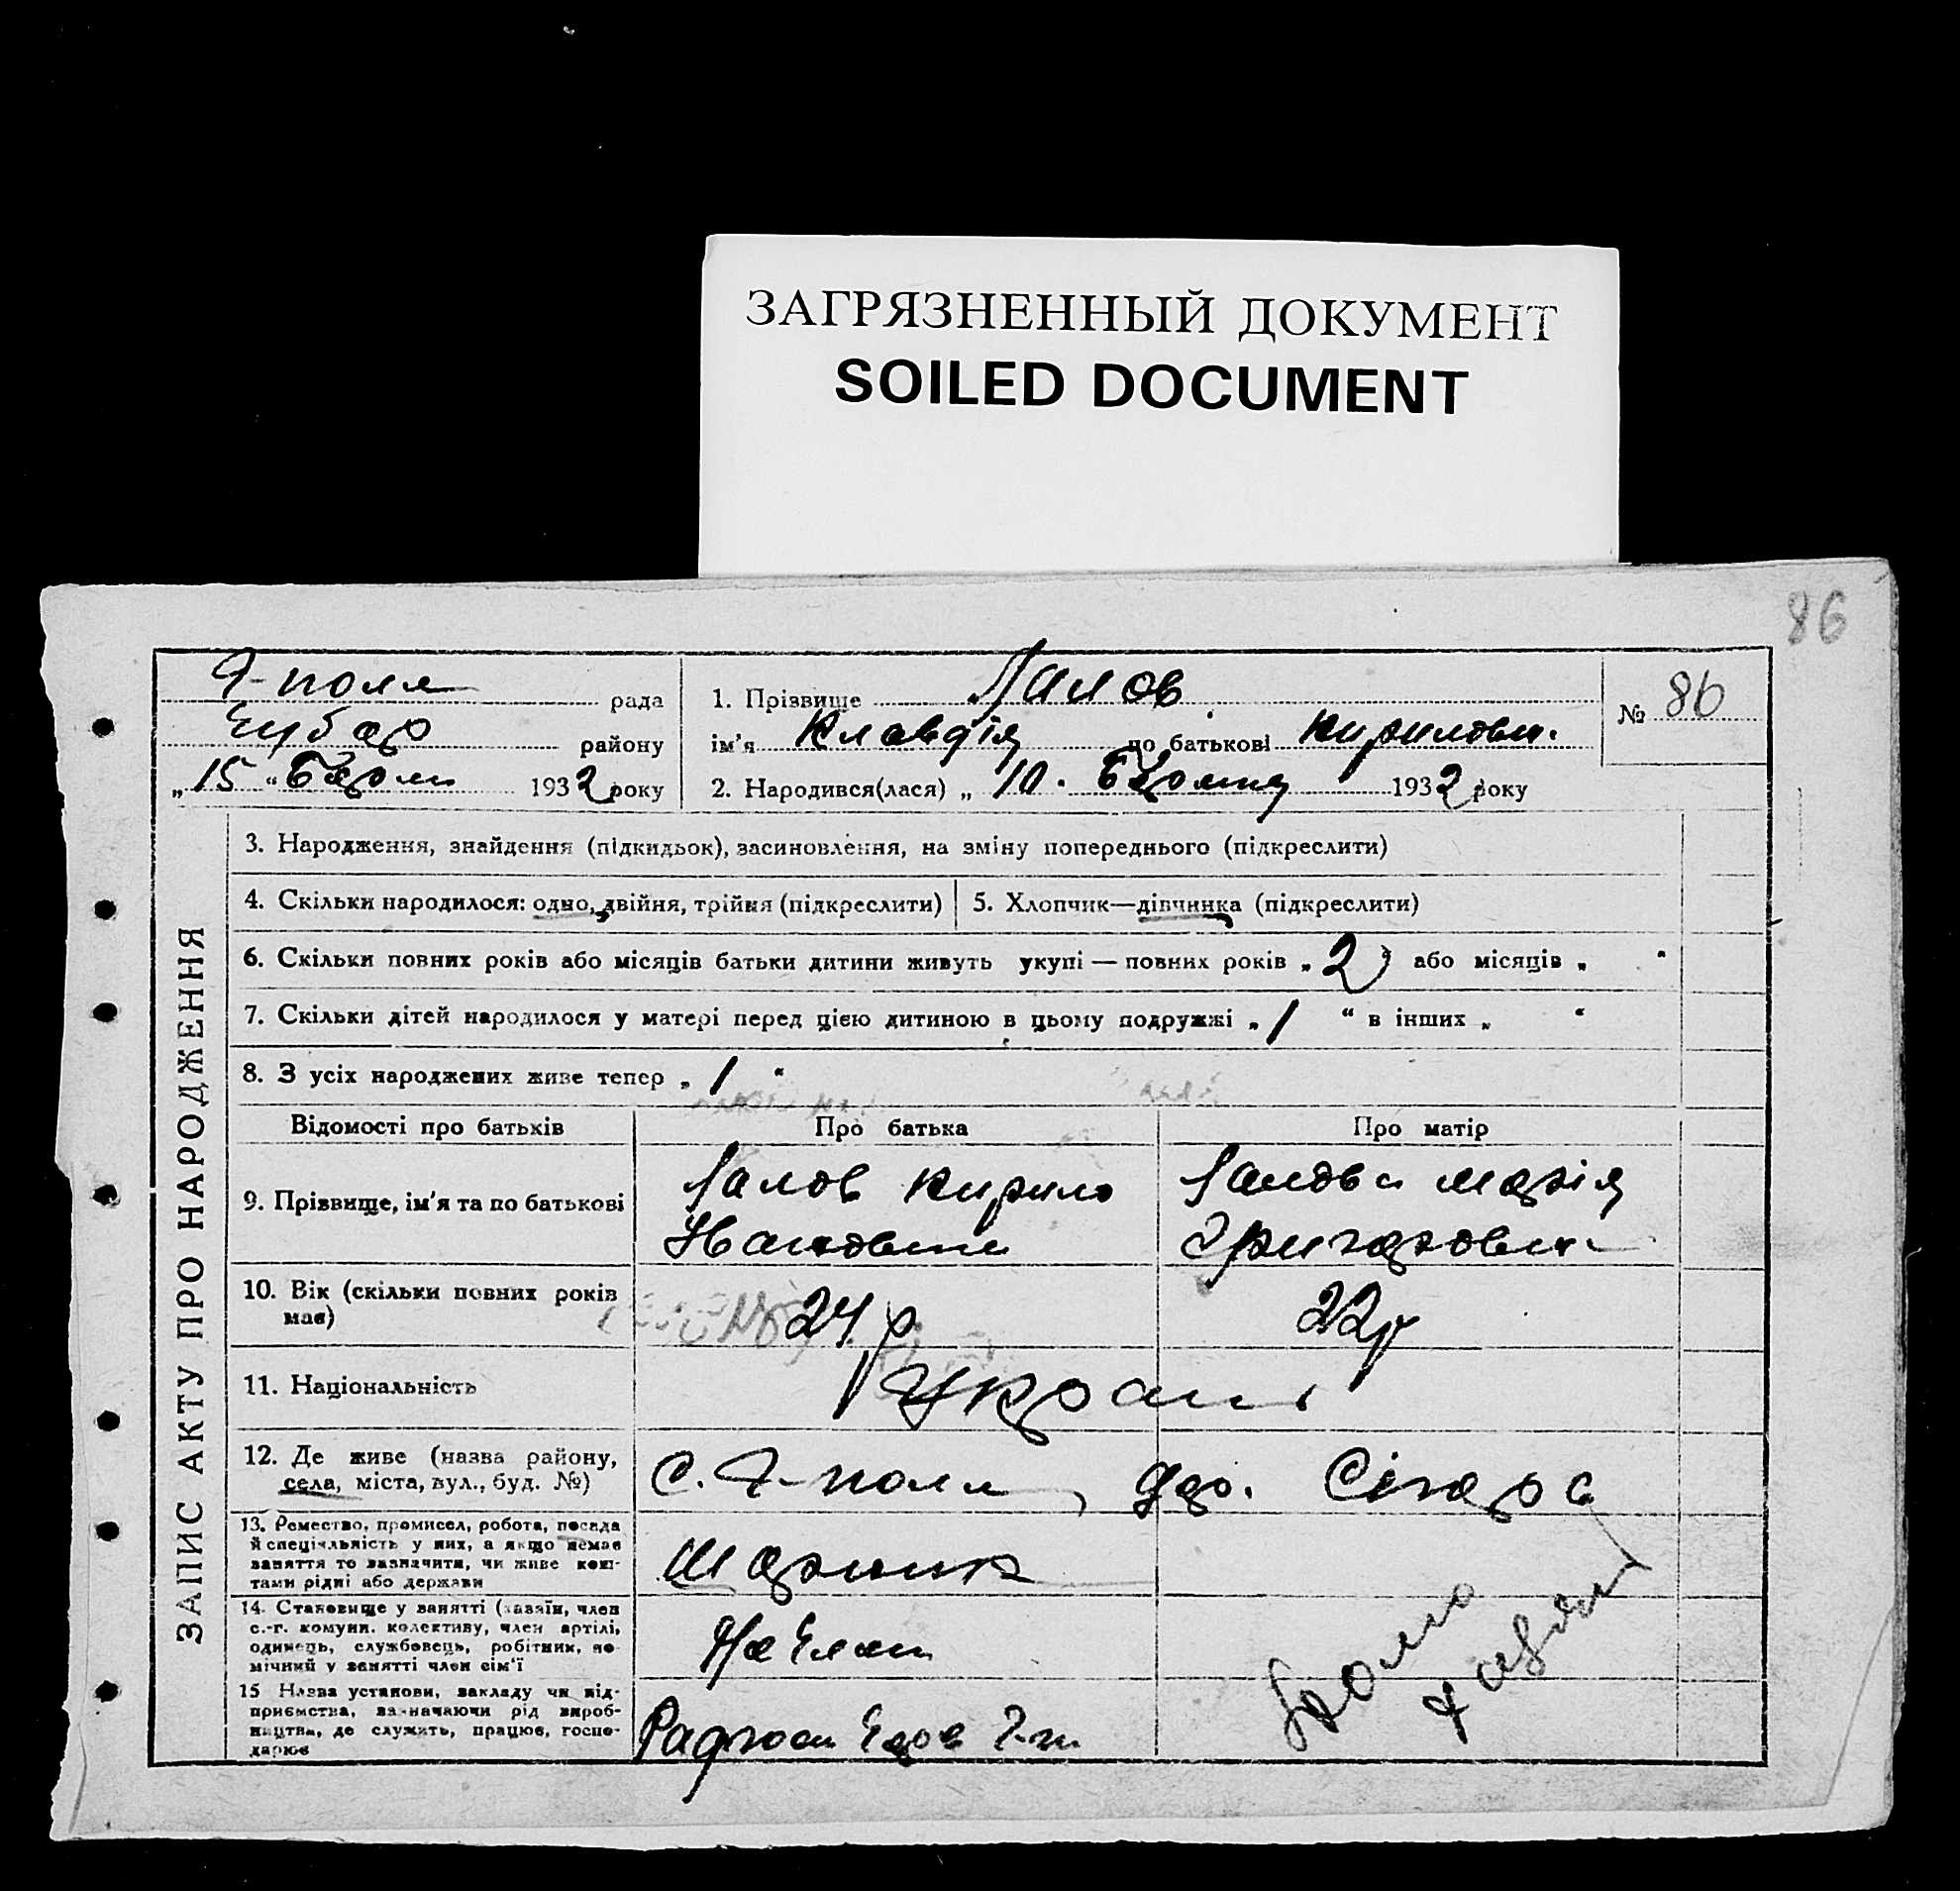 ЗАГРЯЗНЕННЫЙ ДОКУМЕНТ
SOILED DOCUMENT
86
Я-поля рада
Чубар району
„15“ 1932 року
1. Прізвище Лалов
ім'я Клавдія по батькові Кирилови.
2. Народився(лася) „10. 1932 року
№ 86
ЗАПИС АКТУ ПРО НАРОДЖЕННЯ
3. Народження, знайдення (підкидьок), засиновлення, на зміну попереднього (підкреслити)
4. Скільки народилося: одно, двійня, трійня (підкреслити)
5. Хлопчик—дівчинка (підкреслити)
6. Скільки повних років або місяців батьки дитини живуть укупі — повних років „2“ або місяців „ “
7. Скільки дітей народилося у матері перед цією дитиною в цьому подружжі „1 “ в інших „ “
8. З усіх народжених живе тепер „1 “
Відомості про батьків
Про батька
Про матір
9. Прізвище, ім'я та по батькові
Лалов Кирило
Лалова Марія
Григорови
10. Вік (скільки повних років
має)
24 р
22 р
11. Національність
Украин
12. Де живе (назва району,
села, міста, вул., буд. №)
С. Я-поля,
13. Ремество, промисел, робота, посада
й спеціяльність у них, а якщо немає
заняття то зазначити, чи живе кош-
тами рідні або держави
14. Становище у занятті (хазяїн, член
с.-г. комуни, колективу, член артілі,
одинець, службовець, робітник, по-
мічний у занятті член сім'ї
15 Назва установи, закладу чи під-
приємства, зазначаючи рід вироб-
ництва, де служить, працює, госпо-
дарює